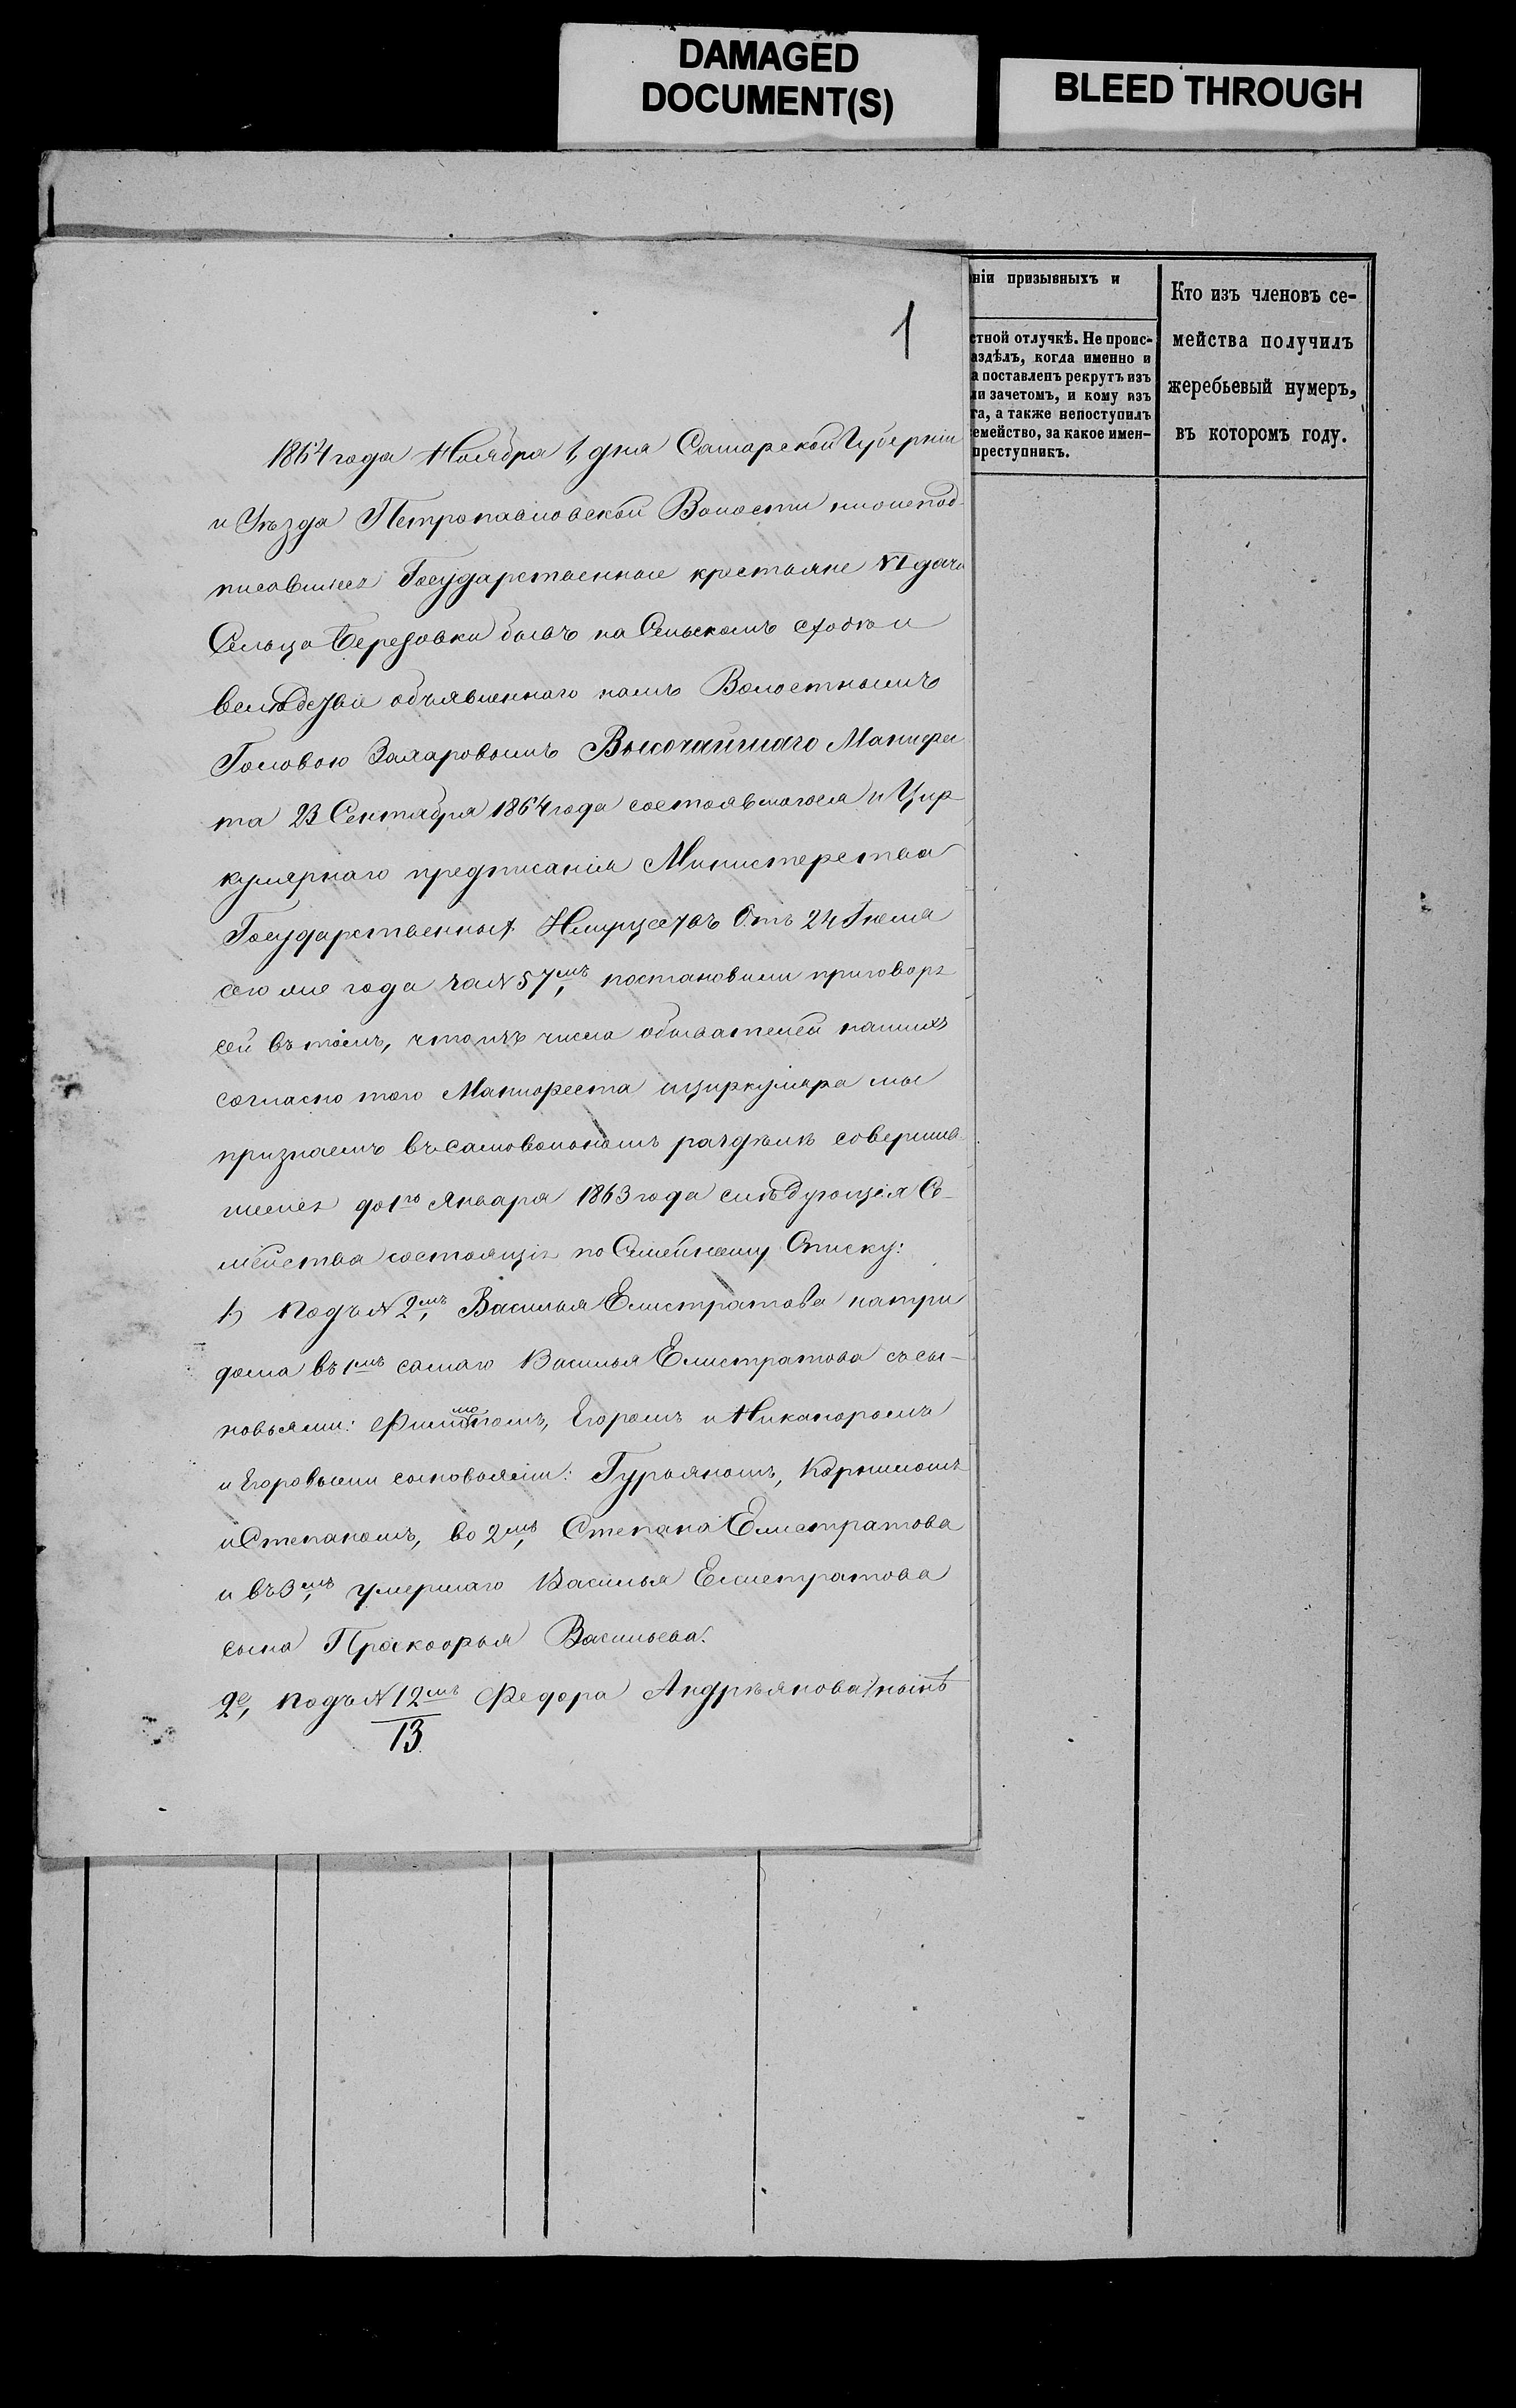 DAMAGED
DOCUMENT(S)
BLEED THROUGH
ніи призывныхъ и
стной отлучкѣ. Не проис-
аздѣлъ, когда именно и
а поставленъ рекрутъ изъ
ли зачетомъ, и кому изъ
та, а также непоступилъ
емейство, за какое имен-
преступникъ.
Кто изъ членовъ се-
мейства получилъ
жеребьевый нумеръ,
въ которомъ году.
1
1864 года Ноября 1, дня Самарской Губерніи
и Уѣзда Петропавловской Волости нижепод-
писавшиеся Государственные крестьяне
Сельца Березовки бывъ на Сельскомъ сходѣ и
вслѣдствіе объявленнаго намъ Волостнымъ
Головою Захаровымъ Высочайшаго Манифе
та 23 Сентября 1864 года состоявшагося и Цир
кулярнаго предписанія Министерства
Государственных Имуществъ Отъ 24 Июля
сего же года за № 57мъ, постановили приговоръ
сей въ томъ, что изъ числа обывателей нашихъ
согласно того Манифеста и циркуляра мы
признаемъ въ самовольномъ раздѣлѣ соверши
шемся до 1го Января 1863 года слѣдующія Се-
мейства состоящія по Семейному Списку:
1) Подъ № 2мъ, Василья Елистратова на три
дома въ 1мъ самаго Василья Елистратова съ сы-
новьями: Егоромъ и Никаноромъ
и Егоровыми сыновьями: Гурьяномъ, Корниломъ
и Степаномъ, во 2мъ, Степана Елистратова
и въ 3мъ, умершаго Василья Елистратова
сына Прокофья Васильева.
2е, подъ № 12мъ Федора Андреянова /нынѣ
13